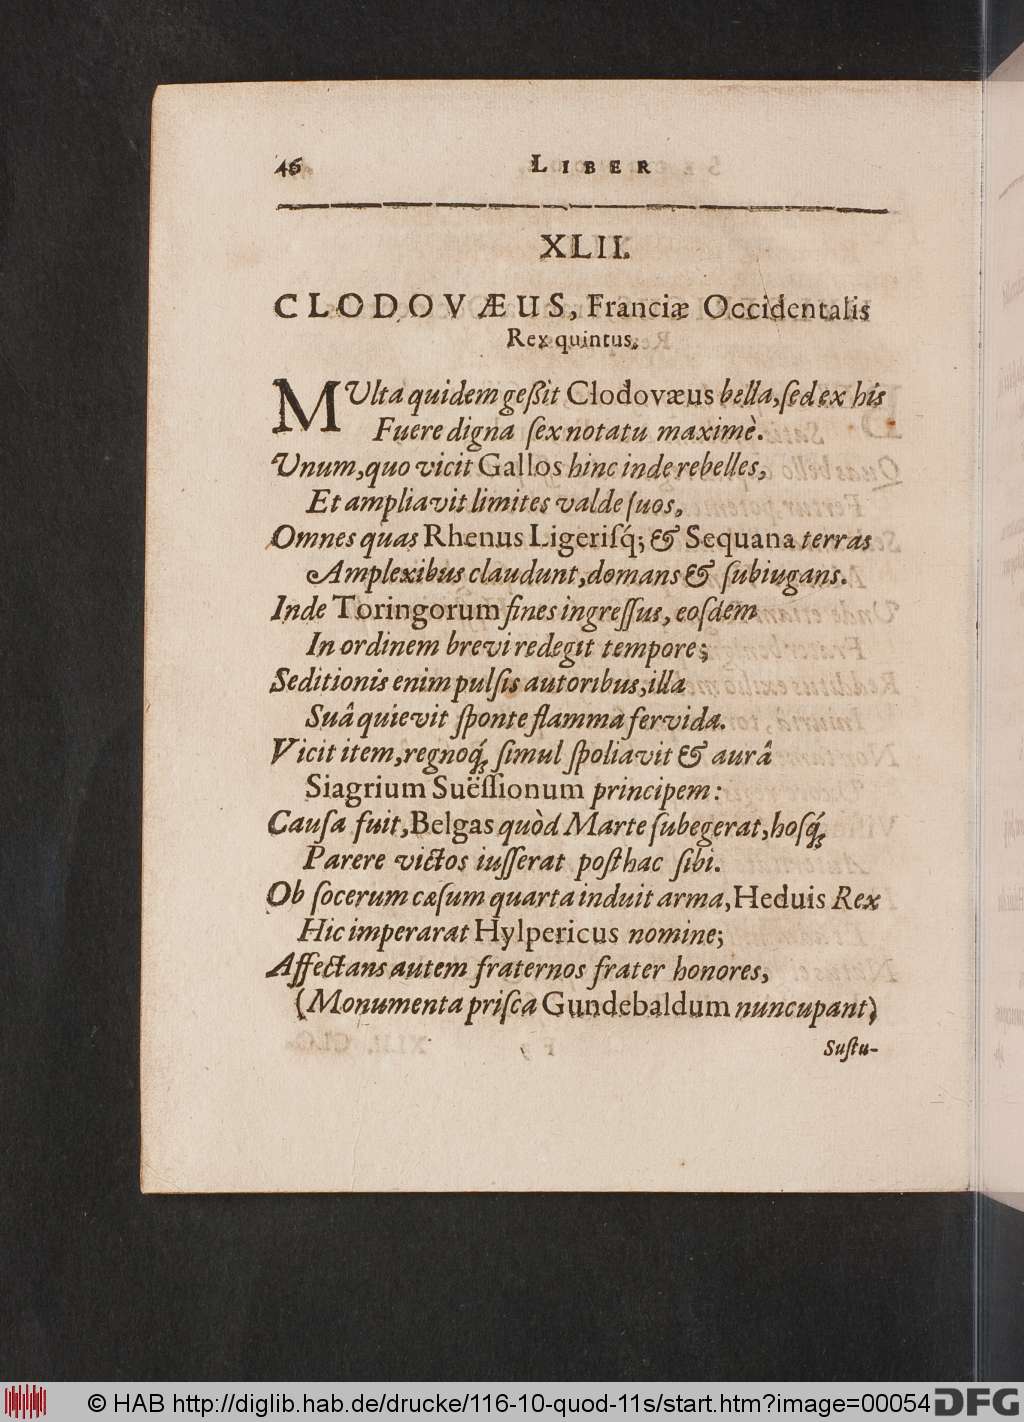 46 LIBER
XLII.
CLODOVÆUS, Franciæ Occidentalis
Rex quintus.
MUlta quidem geßit Clodovæus bella, ſed ex his
Fuere digna ſex notatu maximè.
Unum, quo vicit Gallos hinc inde rebelles,
Et ampliavit limites valde ſuos,
Omnes quas Rhenus Ligeriſq́; & Sequana terras
Amplexibus claudunt, domans & ſubiugans.
Inde Toringorum fines ingreſſus, eoſdem
In ordinem brevi redegit tempore;
Seditionis enim pulſis autoribus, illa
Suâ quievit ſponte flamma fervida.
Vicit item, regnoq́; ſimul ſpoliavit & aurâ
Siagrium Suëſſionum principem:
Cauſa fuit, Belgas quòd Marte ſubegerat, hoſq́;
Parere victos iuſſerat poſthac ſibi.
Ob ſocerum cæſum quarta induit arma, Heduis Rex
Hic imperarat Hylpericus nomine;
Affectans autem fraternos frater honores,
(Monumenta priſca Gundebaldum nuncupant)
Suſtu-
© HAB http://diglib.hab.de/drucke/116-10-quod-11s/start.htm?image=00054 DFG